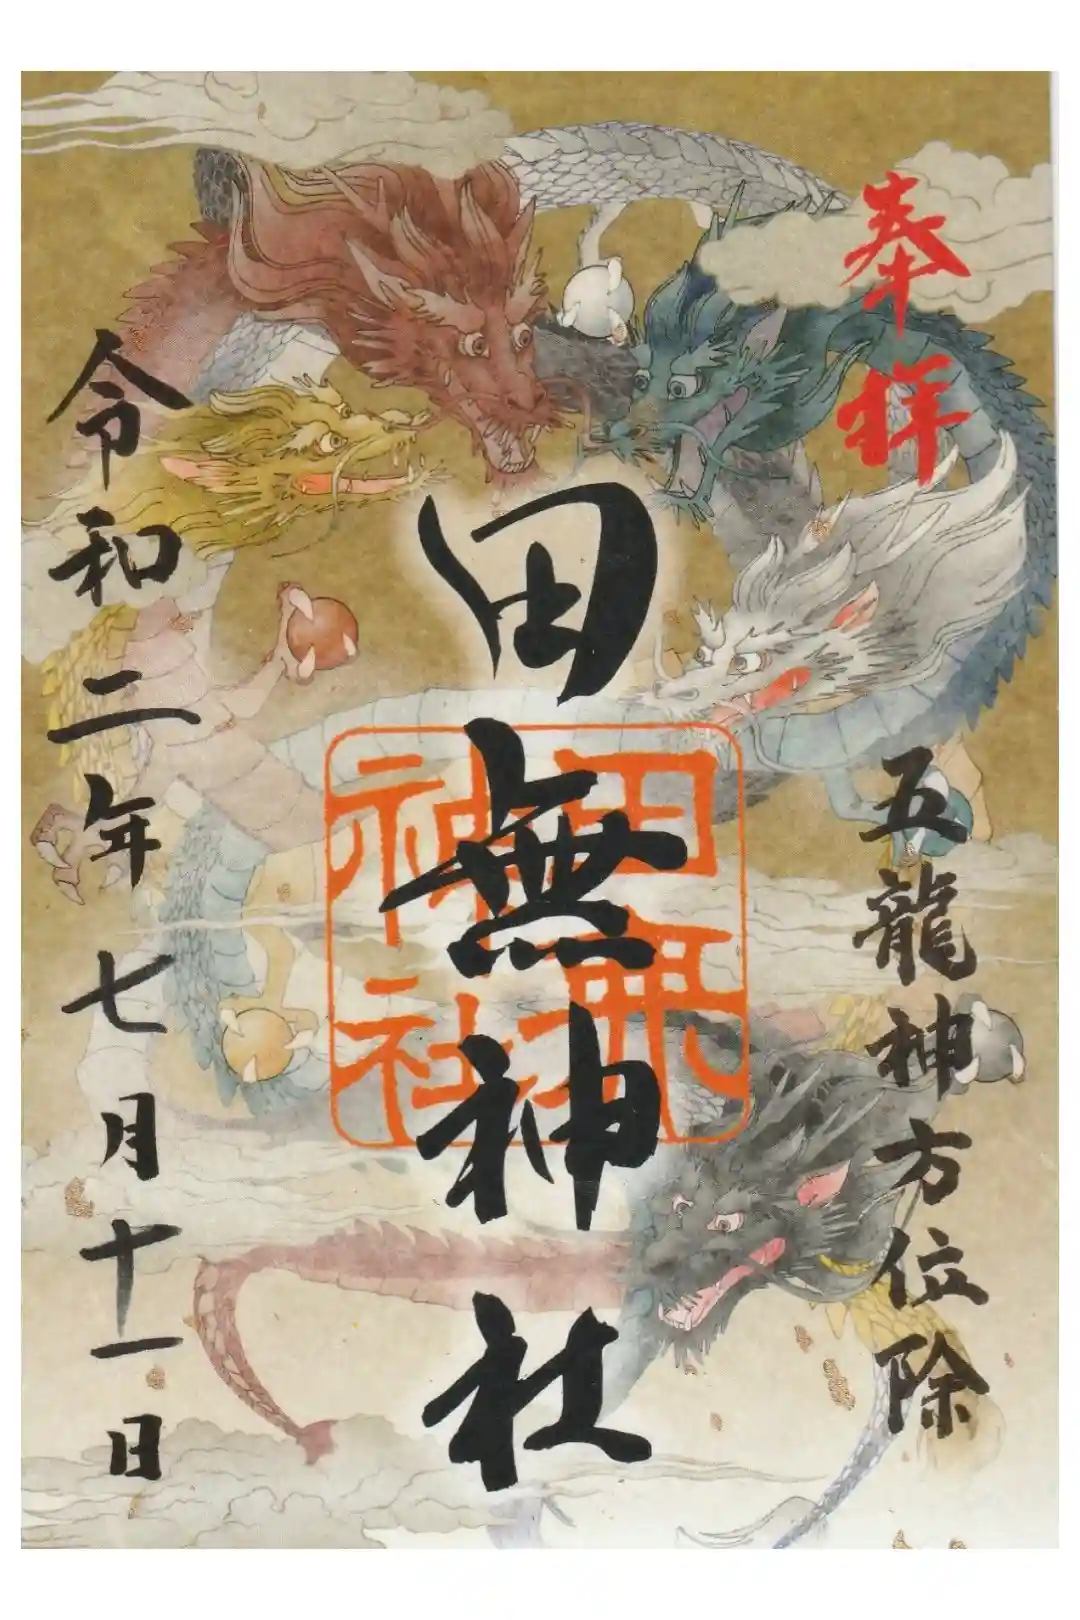 奉拝
五龍神方位除
田無神社
田無
神社
令和二年七月十一日